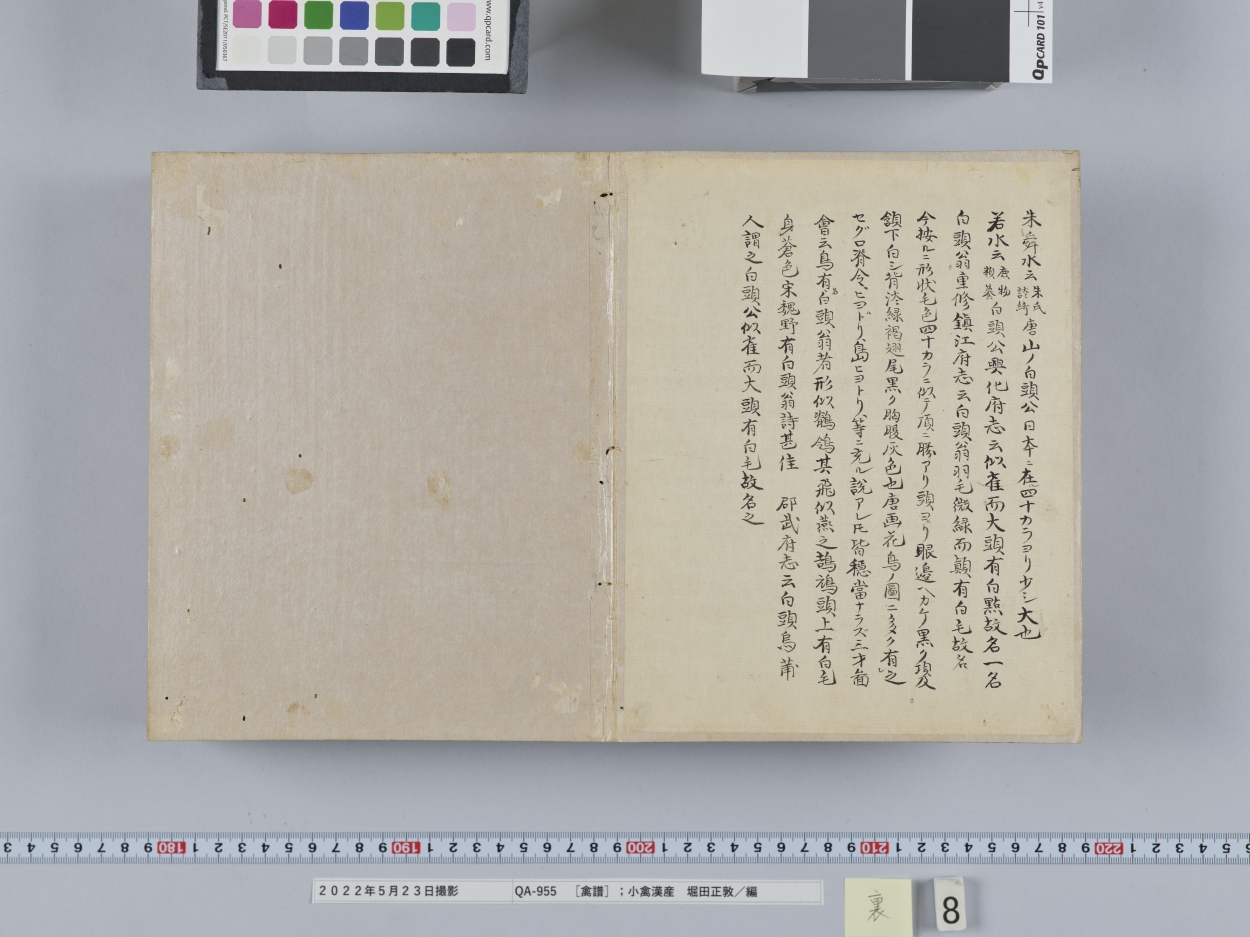 朱舜水云朱氏談綺唐山ノ白頭公日本ニ在四十カラヨリ少シ大也
若水云庶物類纂白頭公興化府志云似雀而大頭有白點故名一名
白頭翁重修鎮江府志云白頭翁羽毛微緑而顛有白毛故名
今按ルニ形状毛色四十カラニ似テ頂ニ勝アリ頭ヨリ眼邉ヘカケ黒ク項及
頷下白シ背淡緑褐翅尾黒ク胸腹灰色也唐画花鳥ノ圖ニ多ク有之
セグロ脊令ヒヨドリ島ヒヨトリ等ニ充ル説アレ𪜈皆穏當ナラズ三才圖
會云鳥有名白頭翁者形似鶺鴒其飛似燕之鵠鳩頭上有白毛
身蒼色宋魏野有白頭翁詩甚佳 邵武府志云白頭鳥莆
人謂之白頭公似雀而大頭有白毛故名之
www.qpcard.com
QpCARD 101 v4
3 4 5 6 7 8 9 180 1 2 3 4 5 6 7 8 9 190 1 2 3 4 5 6 7 8 9 200 1 2 3 4 5 6 7 8 9 210 1 2 3 4 5 6 7 8 9 220 1 2 3 4 5 6
２０２２年５月２３日撮影 QA-955 ［禽譜］；小禽漢産 堀田正敦／編
裏
8